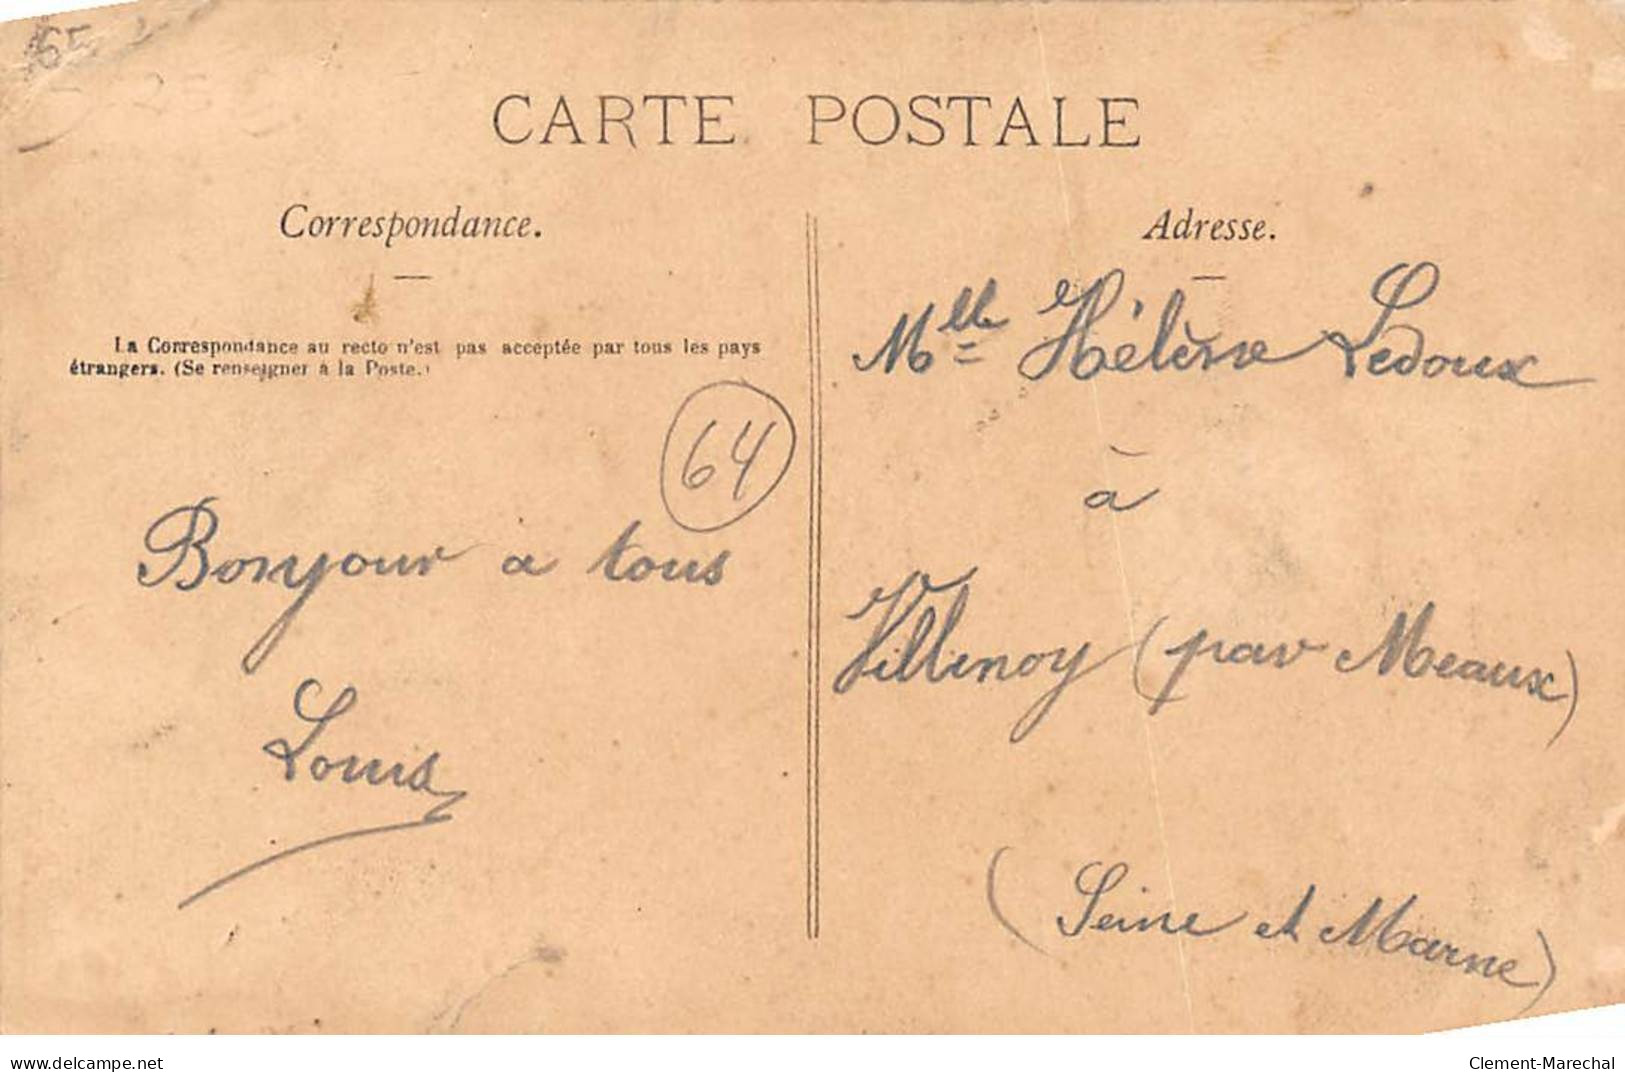 65
CARTE POSTALE
Correspondance.
La Correspondance au recto n'est pas acceptée par tous les pays
étrangers. (Se renseigner à la Poste.)
64
Bonjour a tous
Louis
Adresse.
Mlle Hélène Ledoux
à
Villenoy (par Meaux)
(Seine et Marne)
www.delcampe.net
Clement-Marechal